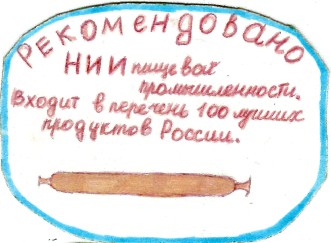 РЕКОМЕНДОВАНО
НИИ пищевой
промышленности.
Входит в перечень 100 лучших
продуктов России.